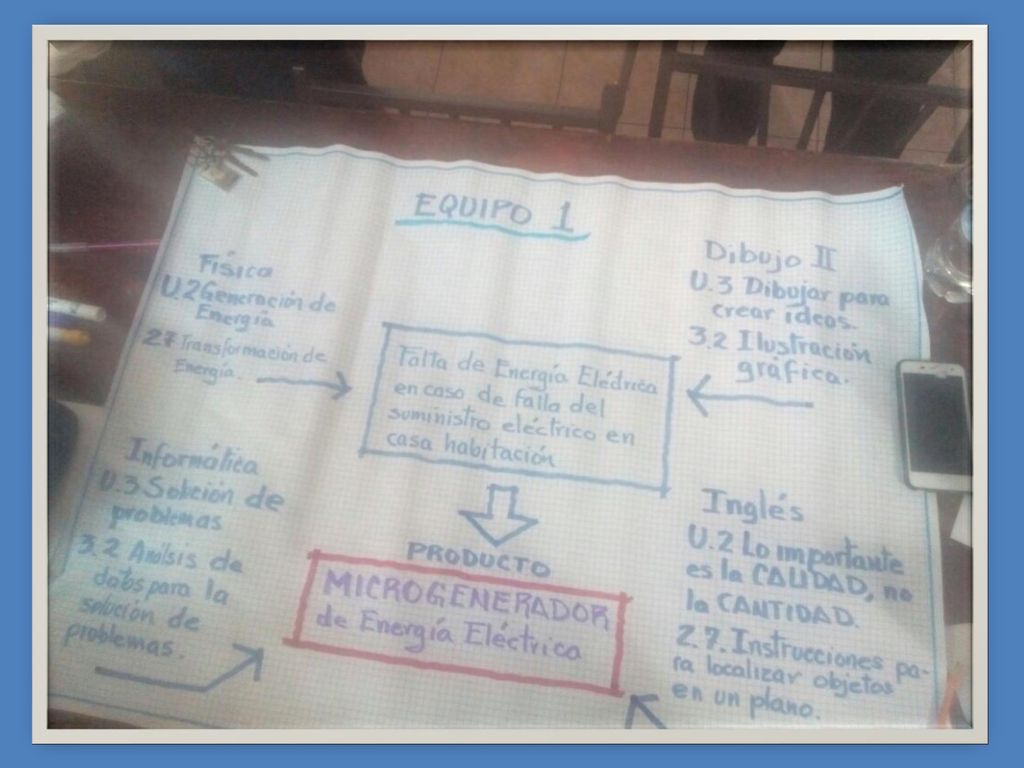 EQUIPO 1
Física
U.2 Generación de
Energía
2.7 Transformación de
Energía.
Informática
U.3 Solución de
problemas
3.2 Análisis de
datos para la
solución de
problemas.
Falta de Energía Eléctrica
en caso de falla del
suministro eléctrico en
casa habitación
PRODUCTO
MICROGENERADOR
de Energía Eléctrica
Dibujo II
U.3 Dibujar para
crear ideas.
3.2 Ilustración
gráfica.
Inglés
U.2 Lo importante
es la CALIDAD, no
la CANTIDAD.
2.7. Instrucciones pa-
ra localizar objetos
en un plano.